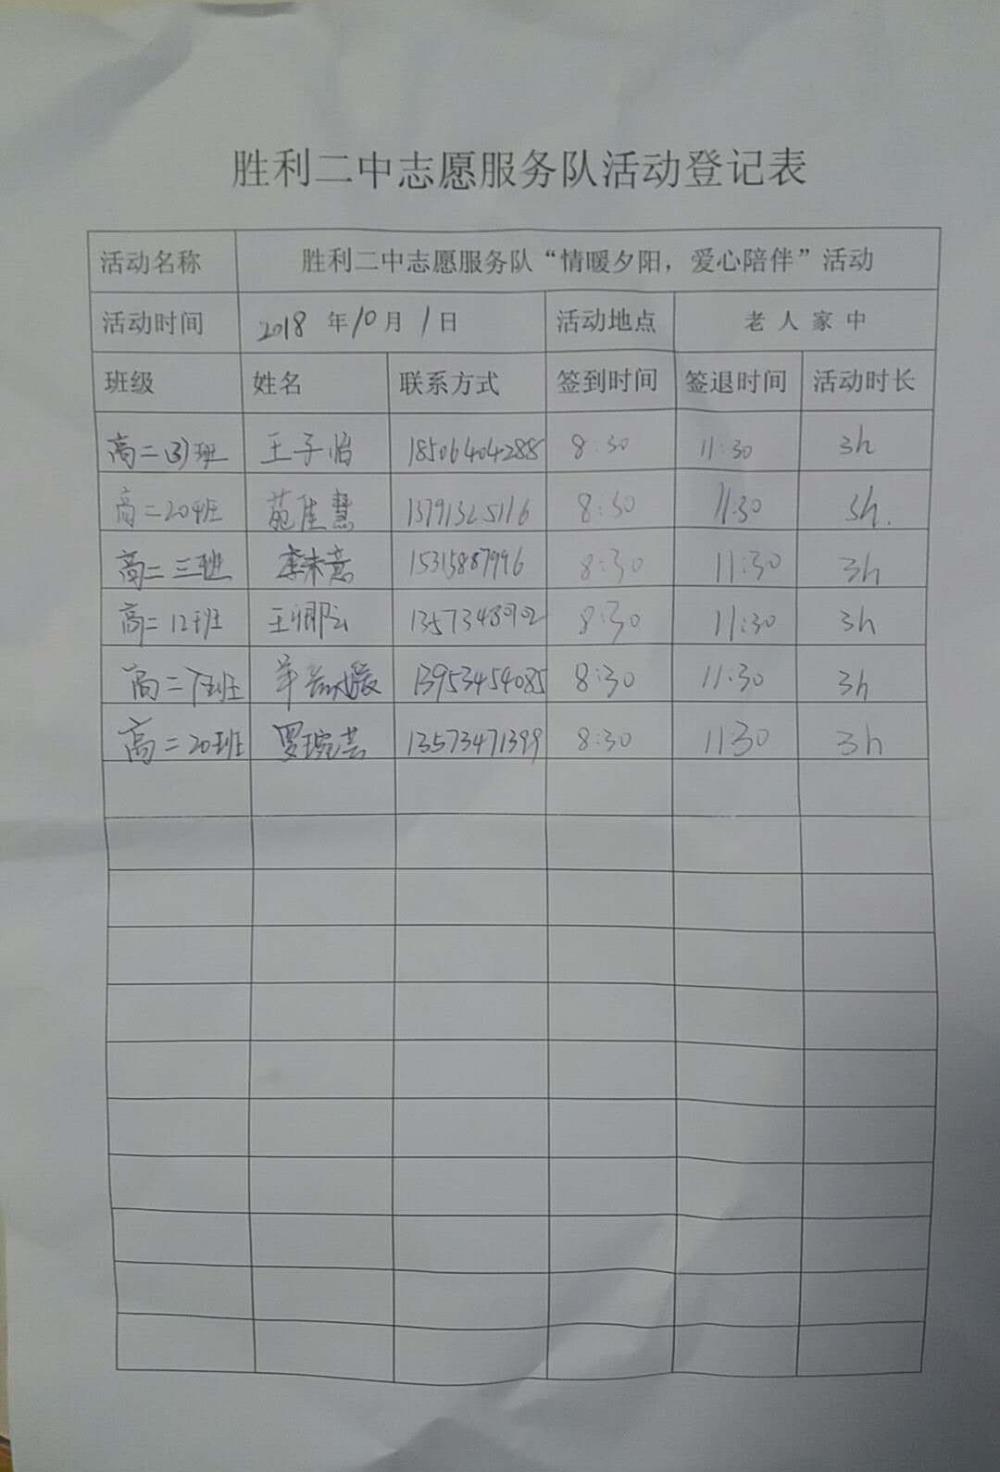 胜利二中志愿服务队活动登记表
活动名称 胜利二中志愿服务队“情暖夕阳，爱心陪伴”活动
活动时间 2018 年10月 1日 活动地点 老人家中
班级 姓名 联系方式 签到时间 签退时间 活动时长
高二(3)班 王子怡 18506404288 8:30 11:30 3h
高二20班 苑佳慧 13791325116 8:30 11:30 3h.
高二三班 李未意 15315887996 8:30 11:30 3h
高二12班 王卿云 13573480902 8:30 11:30 3h
高二 班 13953454085 8:30 11:30 3h
高二20班 罗琬芸 13573471399 8:30 1130 3h